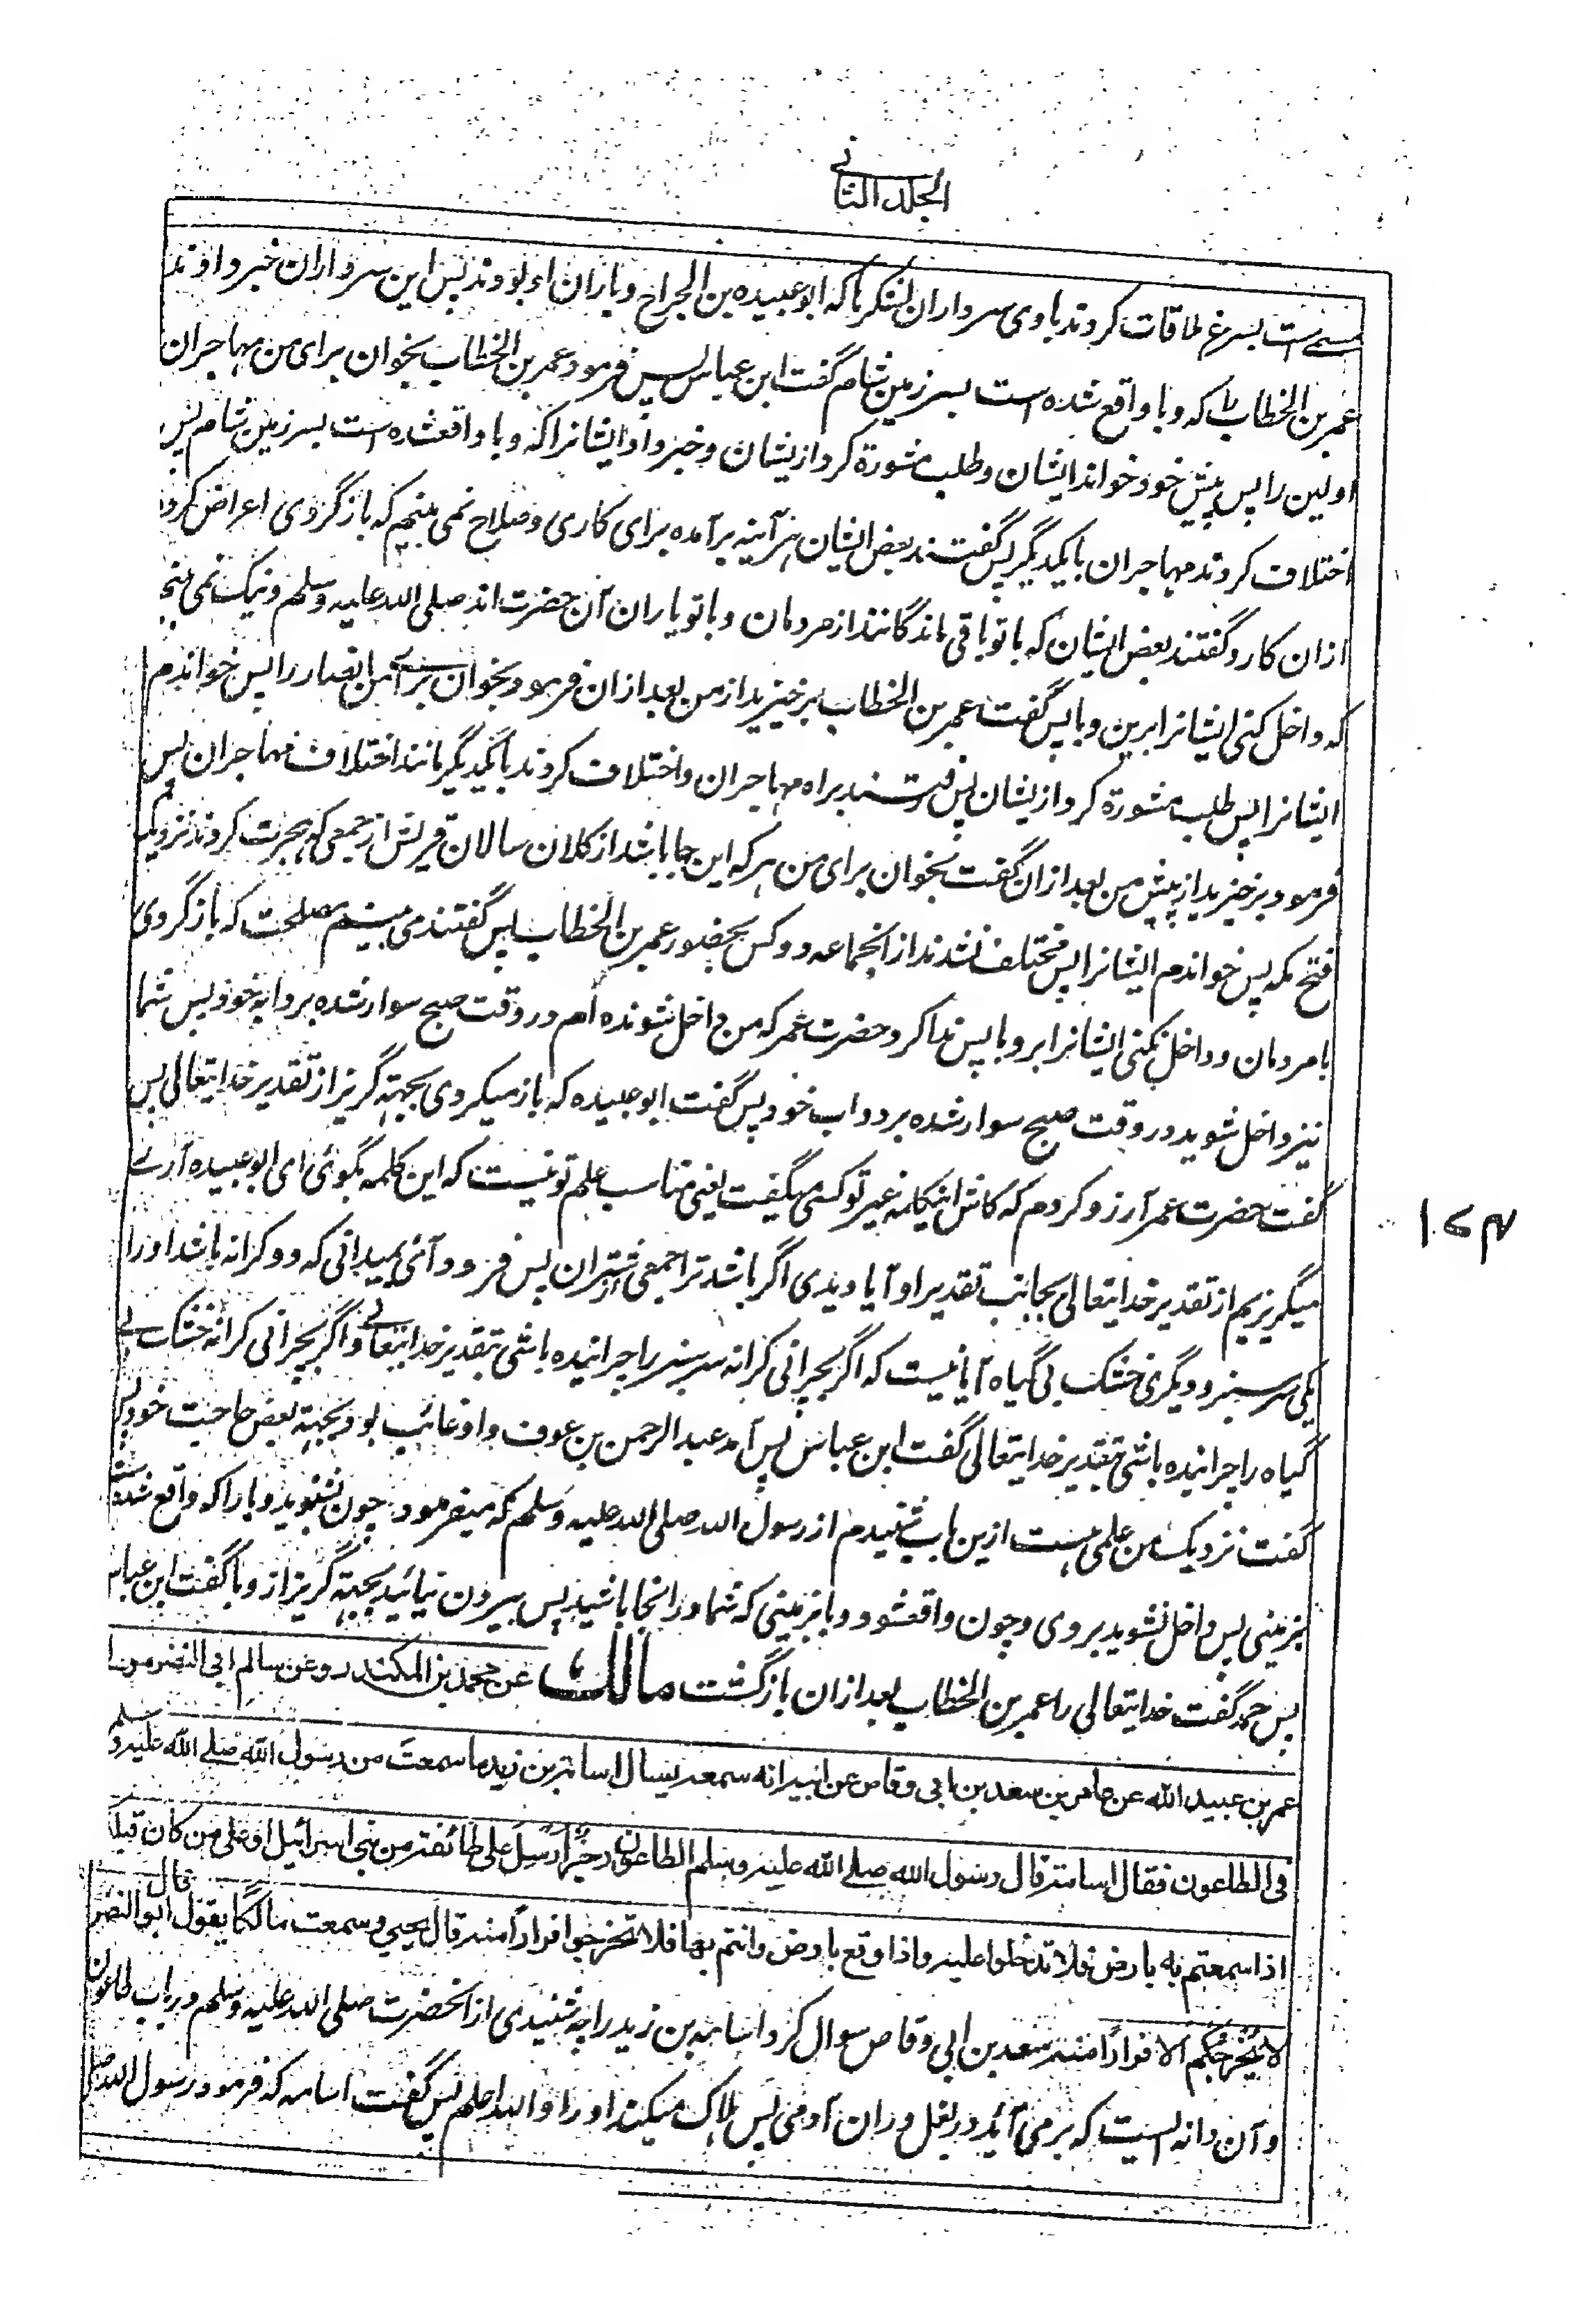 الجلد الثانے
مسمے است بسرغ ملاقات کردند باوی سرداران لشکرها که ابو عبیده بن الجراح ویاران او بودند پس این سرداران خبر دادند
عمر بن الخطاب را که وبا واقع شده است بسرزمین شام گفت ابن عباس پس فرمود عمر بن الخطاب بخوان برای من مهاجران
اولین را پس پیش خود خواند ایشان وطلب مشورة کرد از یشان و خبر داد ایشانرا که وبا واقعشده است بسرزمین شام پس
اختلاف کردند مهاجران بایکدیگر پس گفتند بعض ایشان هرآینه برآمده برای کاری وصلاح نمی بینیم که باز گردی اعراض کرده
ازان کار و گفتند بعض ایشان که با تو باقی ماندگانند از مردمان وبا تو یاران آن حضرت اند صلی الله علیه وسلم ونیک نمی بینیم
که داخل کنی ایشانرا برین وبا پس گفت عمر بن الخطاب برخیزید از من بعد ازان فرمود بخوان برائے من انصار را پس خواندم
ایشانرا پس طلب مشورة کرد از یشان پس رفتند براه مهاجران واختلاف کردند بایکدیگر مانند اختلاف مهاجران پس
فرمود برخیزید از پیش من بعد ازان گفت بخوان برای من هر که این جا باشد از کلان سالان قریش از جمعی که هجرت کردند نزدیک
فتح مکه پس خواندم ایشانرا پس مختلف نشدند از انجماعه دو کس بحضور عمر بن الخطاب پس گفتند می بینیم مصلحت که باز گردی
با مردمان و داخل نکنی ایشانرا بر وبا پس ندا کرد حضرت عمر که من داخل شونده ام در وقت صبح سوار شده بر دابه خود پس شما
نیز داخل شوید در وقت صبح سوار شده بر دواب خود پس گفت ابو عبیده که باز میگردی بجهة گریز از تقدیر خدایتعالی پس
گفت حضرت عمر آرزو کردم که کاش اینکلمه غیر تو کسی میگفت یعنی مناسب علم تو نیست که این کلمه بگوئی ای ابو عبیده آرے
میگریزیم از تقدیر خدایتعالی بجانب تقدیر او آیا دیدی اگر باشد ترا جمعی از شتران پس فرود آئی بمیدانی که دو کرانه باشد او را
یکی سرسبز و دیگری خشک بی گیاه آیا نیست که اگر بچرانی کرانه سرسبز را چرانیده باشی بتقدیر خدایتعالے و اگر بچرانی کرانه خشک بے
گیاه را چرانیده باشی بتقدیر خدایتعالی گفت ابن عباس پس آمد عبد الرحمن بن عوف و او غائب بود بجهة بعض حاجت خود پس
گفت نزدیک من علمی هست ازین باب شنیدم از رسول الله صلی الله علیه وسلم که میفرمود چون بشنوید وبا را که واقع شده است
بزمینی پس داخل نشوید بروی وچون واقعشود وبا بزمینی که شما در انجا باشید پس بیرون نیائید بجهة گریز از وبا گفت ابن عباس
پس حمد گفت خدایتعالی را عمر بن الخطاب بعد ازان بازگشت مالك عن محمد بن المنکدر وعن سالم ابی النضر مولى
عمر بن عبید الله عن عامر بن سعد بن ابی وقاص عن ابیه انه سمعه یسال اسامة بن زید ما سمعت من رسول الله صلے الله علیه وسلم
فی الطاعون فقال اسامة قال رسول الله صلے الله علیه وسلم الطاعون رجز ارسل على طائفة من بنی اسرائیل او على من کان قبلکم
اذا سمعتم به بارض فلا تدخلوا علیه واذا وقع بارض وانتم بها فلا تخرجوا فرارًا منه قال یحیى وسمعت مالکًا یقول قال ابو النضر
لا یُخرجُکم الا فرارًا منه سعد بن ابی وقاص سوال کرد اسامه بن زید را چه شنیدی از انحضرت صلی الله علیه وسلم در باب طاعون
و آن دانه ایست که برمی آید در بغل و ران آدمی پس هلاک میکند او را والله اعلم پس گفت اسامه که فرمود رسول الله صلی
۱۷۴